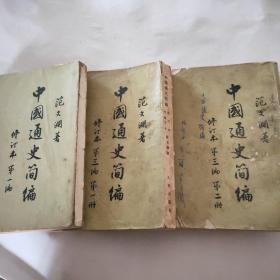 范文澜著
中國通史简编
修订本 第一编
范文澜著
中國通史简编
修订本 第三编 第一册
范文澜著
中國通史简编
修订本 第三编 第二册